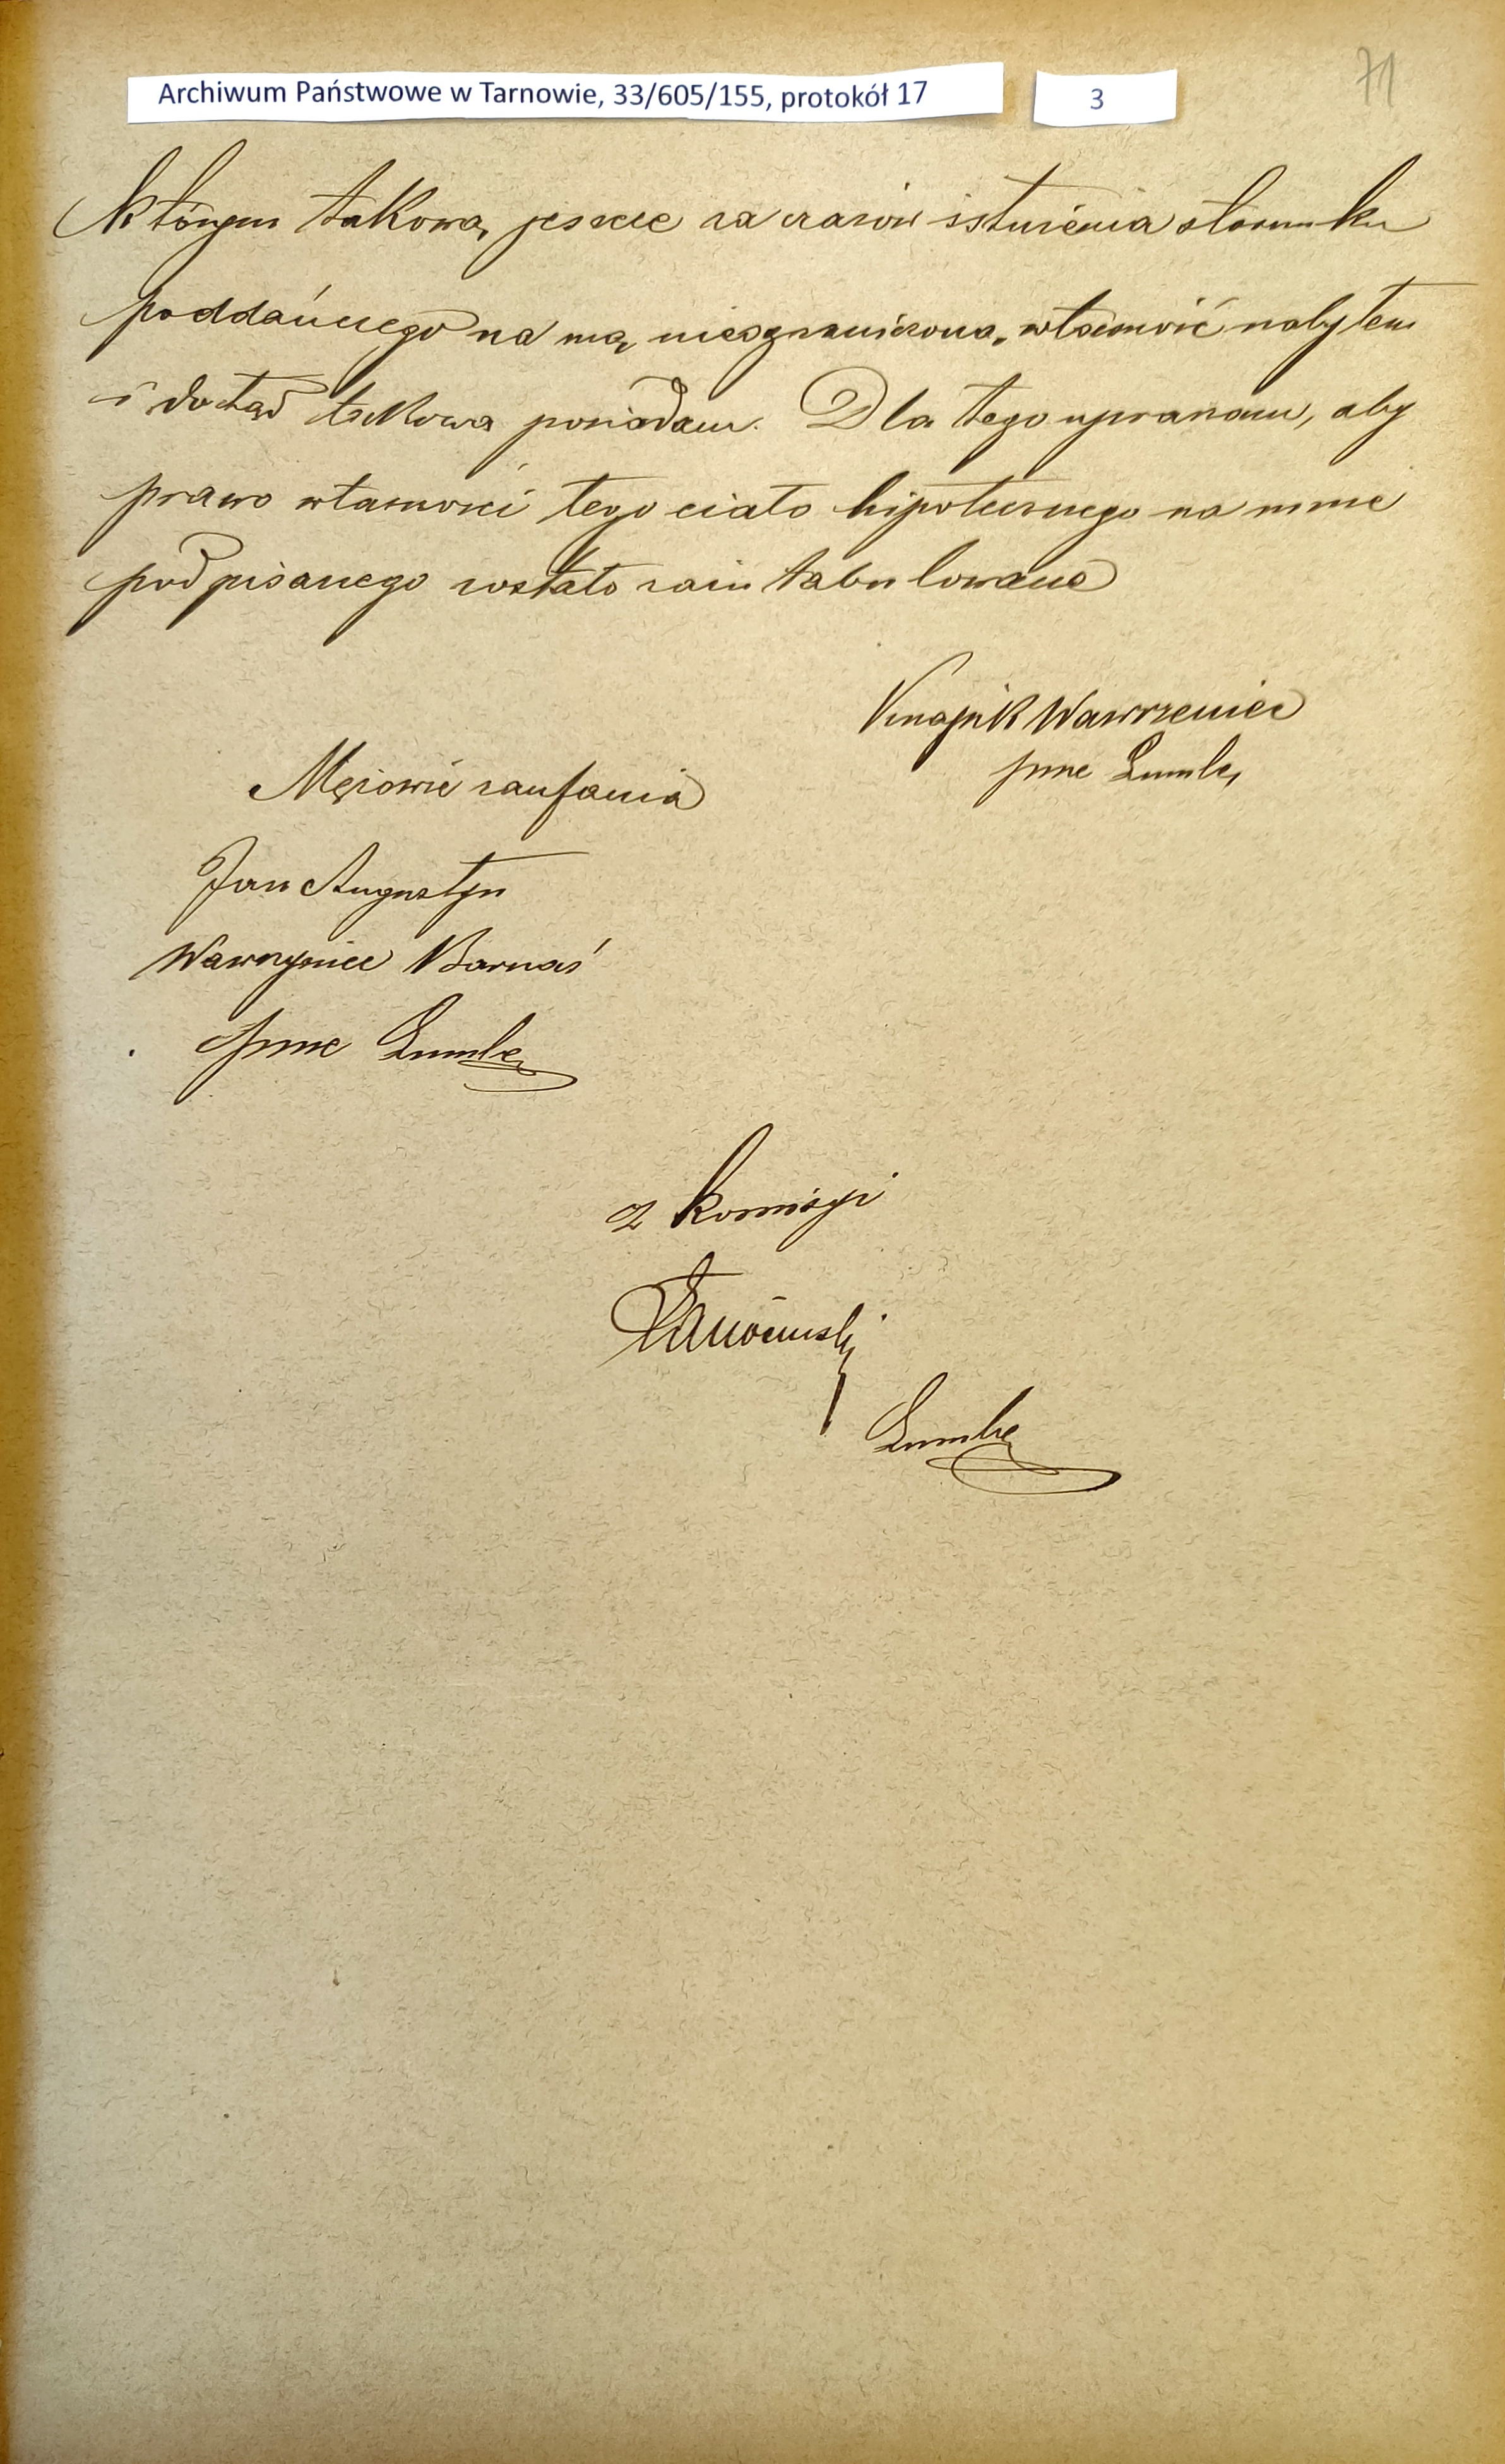 Archiwum Państwowe w Tarnowie, 33/605/155, protokół 17
3
71
którym takową jeszcze za czasów istnienia stosunku
poddańczego na mą nieograniczoną własność nabyłem
i dotąd takową posiadam. Dla tego upraszam, aby
prawo własności tego ciała hipotecznego na mnie
podpisanego zostało zaintabulowane
Wawrzeniec
Mężowie zaufania
Jan Augustyn
Wawrzyniec Barnaś
z komisyi